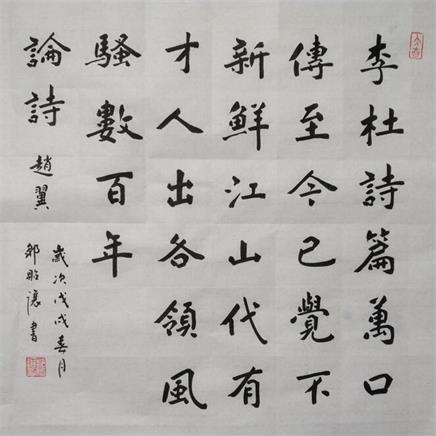 李杜詩篇萬口
傳至今已覺不
新鮮江山代有
才人出各領風
騷數百年
論詩 趙翼
歲次戊戌春月
書